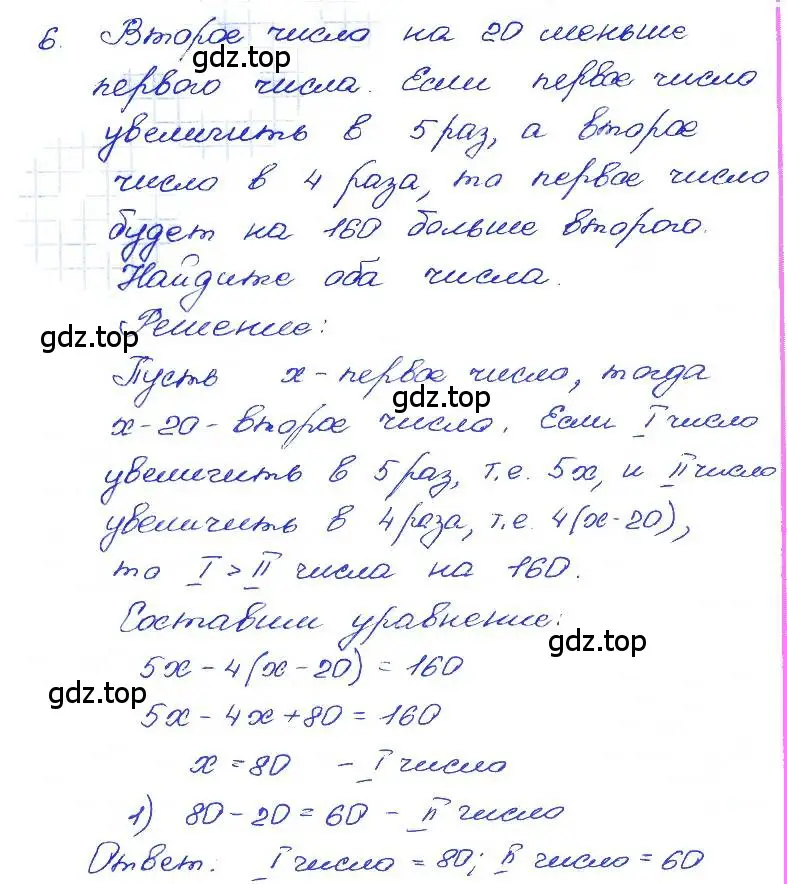 6. Второе число на 20 меньше
gdz.top
первого числа. Если первое число
увеличить в 5 раз, а второе
число в 4 раза, то первое число
будет на 160 больше второго.
Найдите оба числа.
Решение:
gdz.top
Пусть x - первое число, тогда
gdz.top
x-20 - второе число. Если I число
увеличить в 5 раз, т.е. 5x, и II число
увеличить в 4 раза, т.е. 4(x-20),
то I > II числа на 160.
Составим уравнение:
gdz.top
5x - 4(x-20) = 160
gdz.top
5x - 4x + 80 = 160
x = 80 - I число
1) 80 - 20 = 60 - II число
gdz.top
Ответ: I число = 80; II число = 60